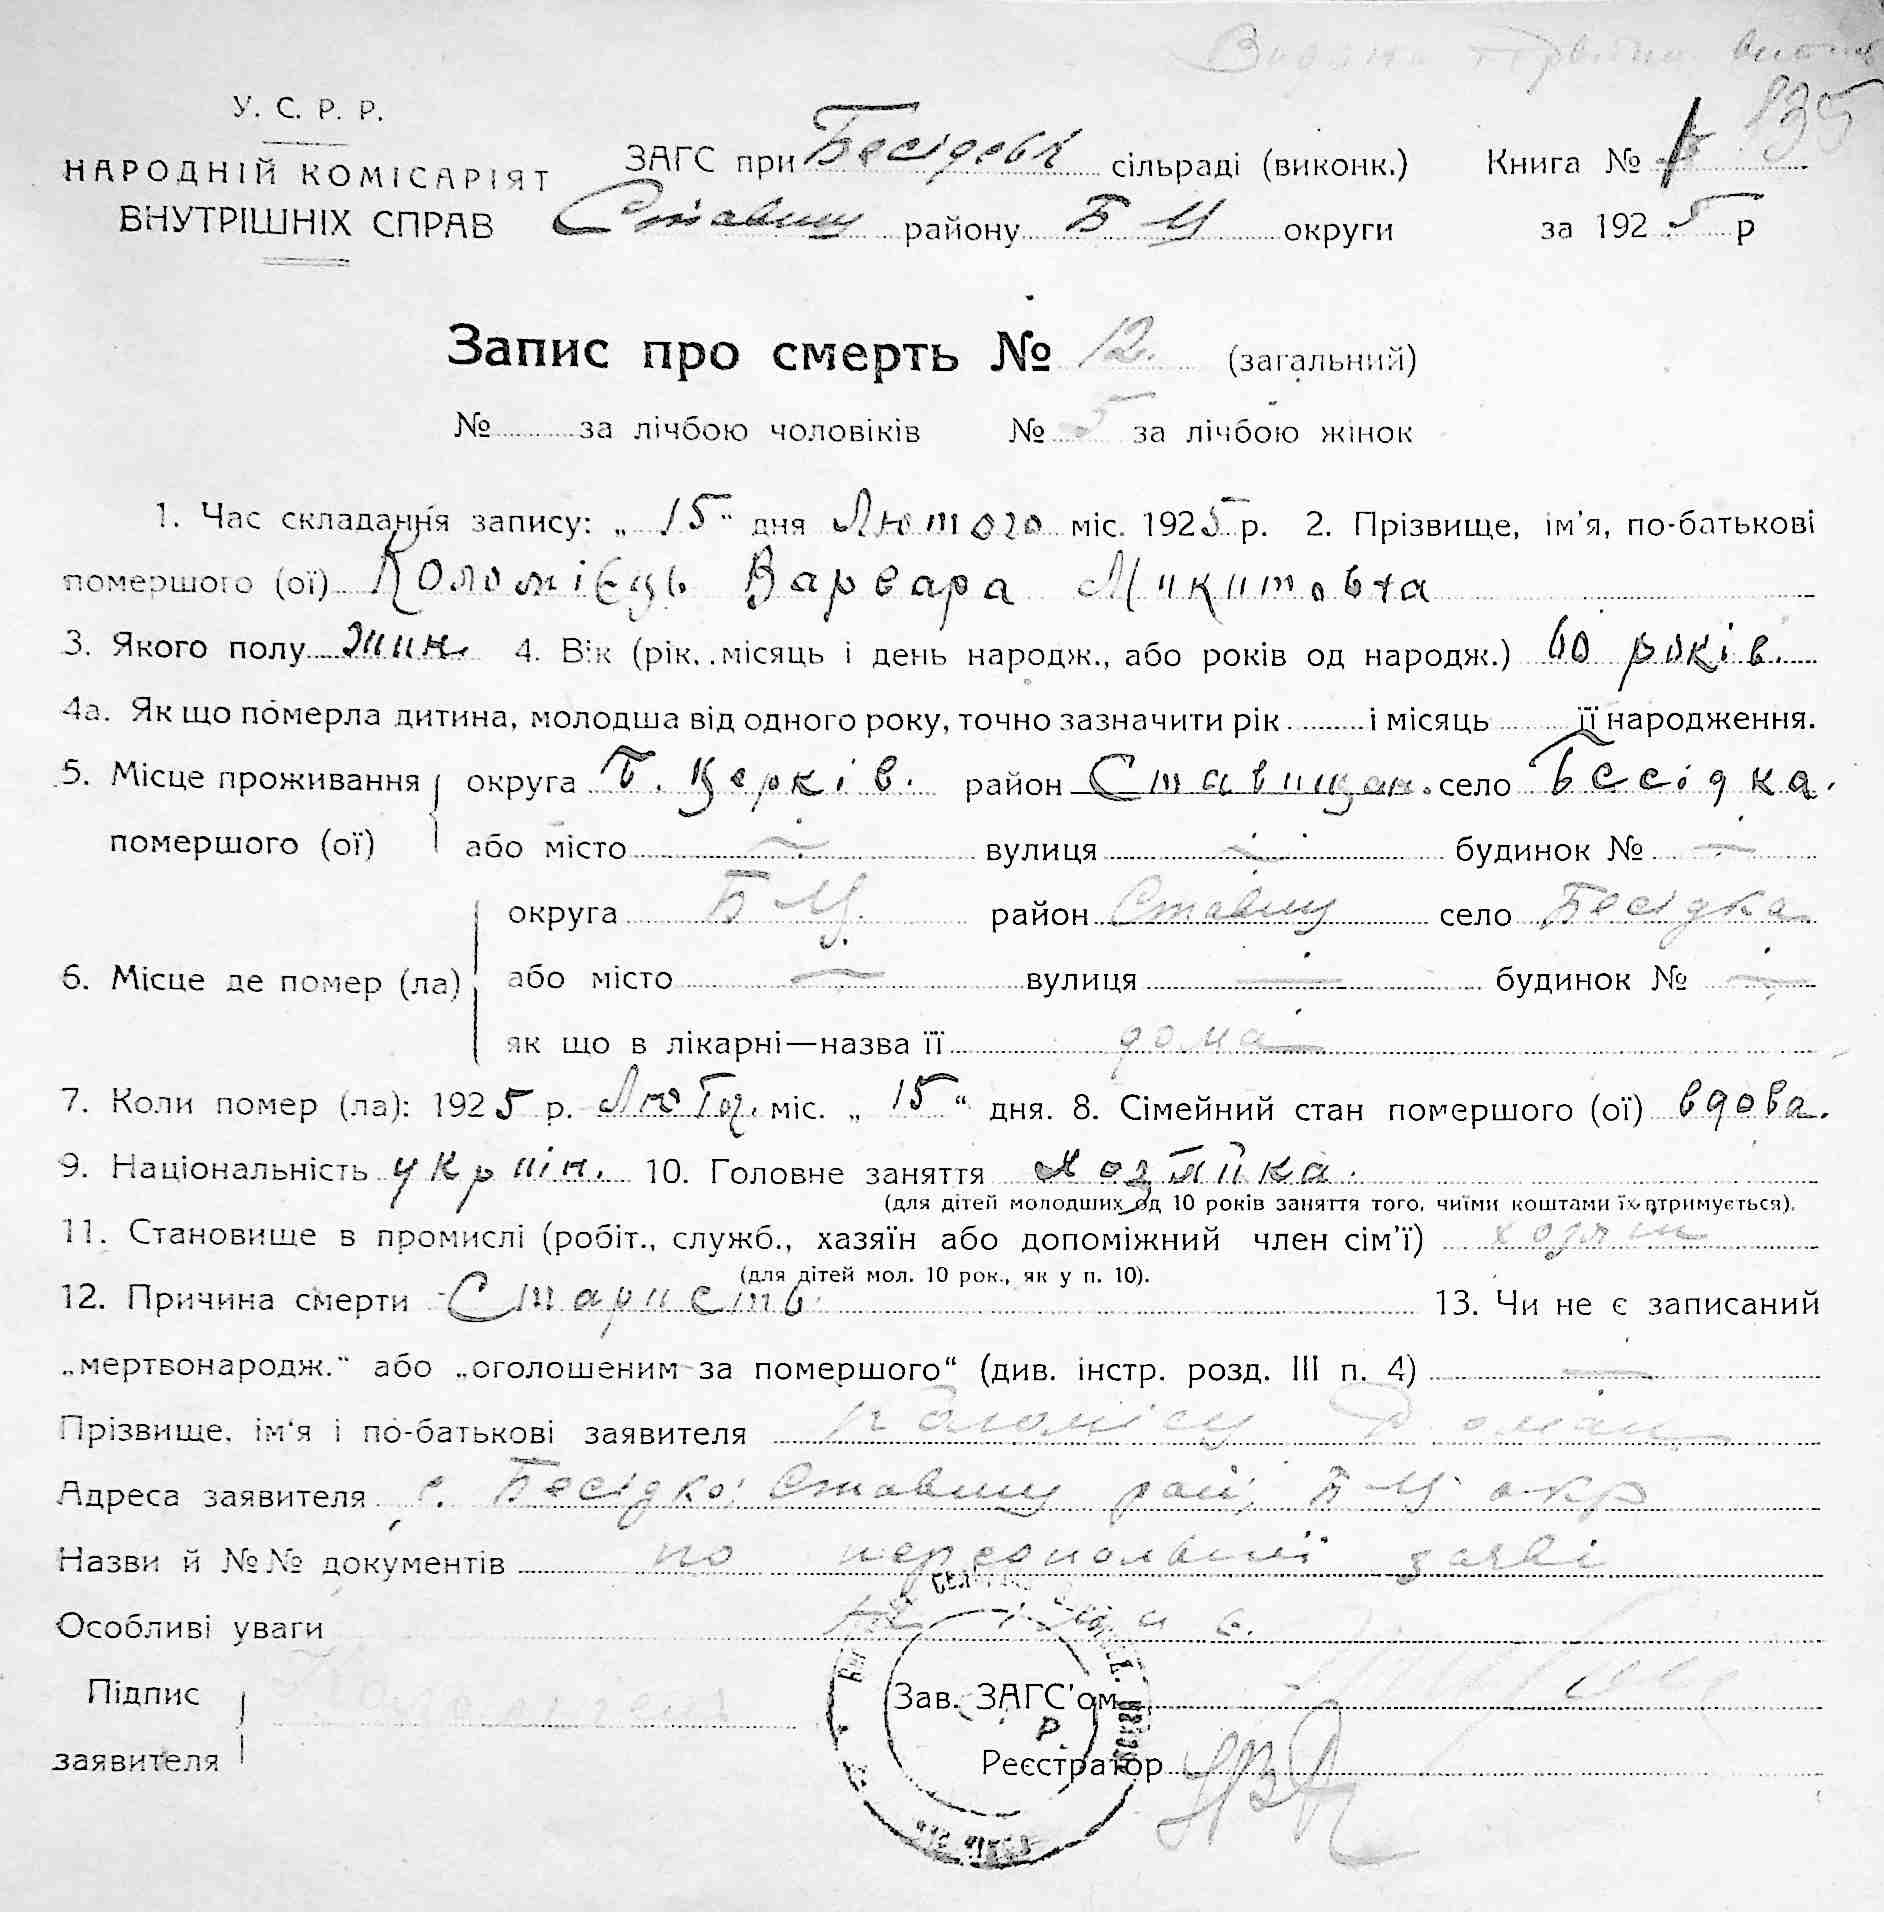 Видана
У. С. Р. Р.
НАРОДНІЙ КОМІСАРІЯТ
ВНУТРІШНІХ СПРАВ
ЗАГС при Бесідськ сільраді (виконк.) Книга № 1 835
Ставищ району Б Ц округи за 1925 р
Запис про смерть № 12. (загальний)
№ за лічбою чоловіків № 5 за лічбою жінок
1. Час складання запису: „ 15 “ дня Лютого міс. 1925 р. 2. Прізвище, ім'я, по-батькові
помершого (ої) Коломієць Варвара Микитовна
3. Якого полу жин. 4. Вік (рік, місяць і день народж., або років од народж.) 60 років.
4а. Як що померла дитина, молодша від одного року, точно зазначити рік і місяць її народження.
5. Місце проживання округа Б. Церків. район Ставищан. село Бесідка.
помершого (ої) або місто — вулиця — будинок № —
округа Б Ц. район Ставищ село Бесідка
6. Місце де помер (ла) або місто — вулиця — будинок № —
як що в лікарні—назва її дома
7. Коли помер (ла): 1925 р. Лютог. міс. „ 15 “ дня. 8. Сімейний стан помершого (ої) вдова.
9. Національність україн. 10. Головне заняття хозяйка.
(для дітей молодших од 10 років заняття того, чиїми коштами їх втримується).
11. Становище в промислі (робіт., служб., хазяїн або допоміжний член сім'ї)
(для дітей мол. 10 рок., як у п. 10).
12. Причина смерти Старисть 13. Чи не є записаний
„мертвонародж.“ або „оголошеним за помершого“ (див. інстр. розд. III п. 4) —
Прізвище, ім'я і по-батькові заявителя Коломієц Роман
Адреса заявителя с. Бесідка Ставищ рай Б Ц окр
Назви й №№ документів по персональні заяві
Особливі уваги
Підпис
заявителя
Зав. ЗАГС'ом
Реєстратор